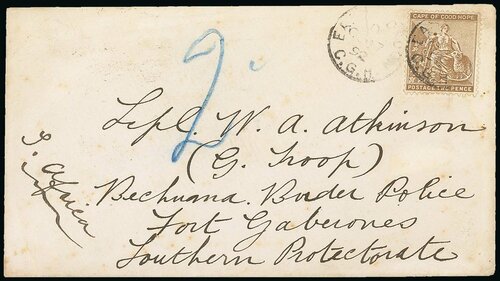 CAPE OF GOOD HOPE
POSTAGE TWO PENCE
C.G.H.
2
W. A. Atkinson
(G. Troop)
Bechuana. Border Police
Fort Gaberones
Southern Protectorate
S. Africa